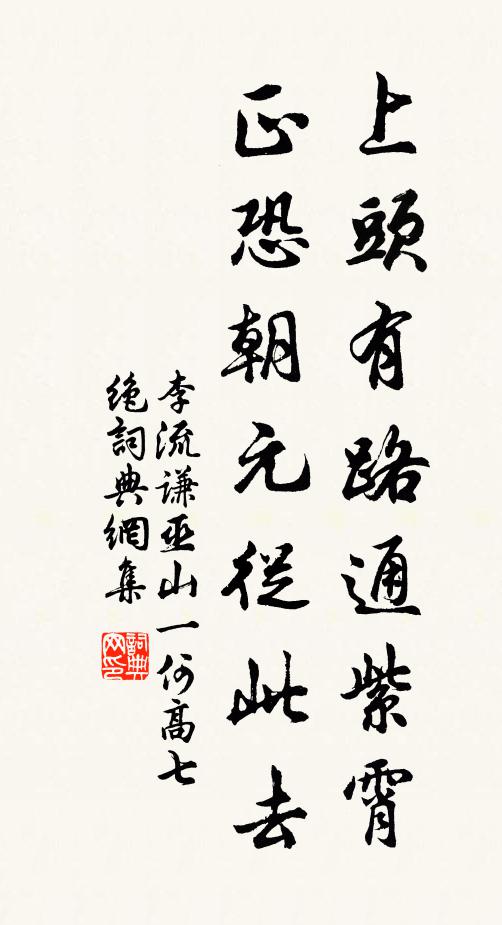 上頭有路通紫霄
正恐朝元從此去
李流谦巫山一何高七
絶詞典網集
詞典
网印